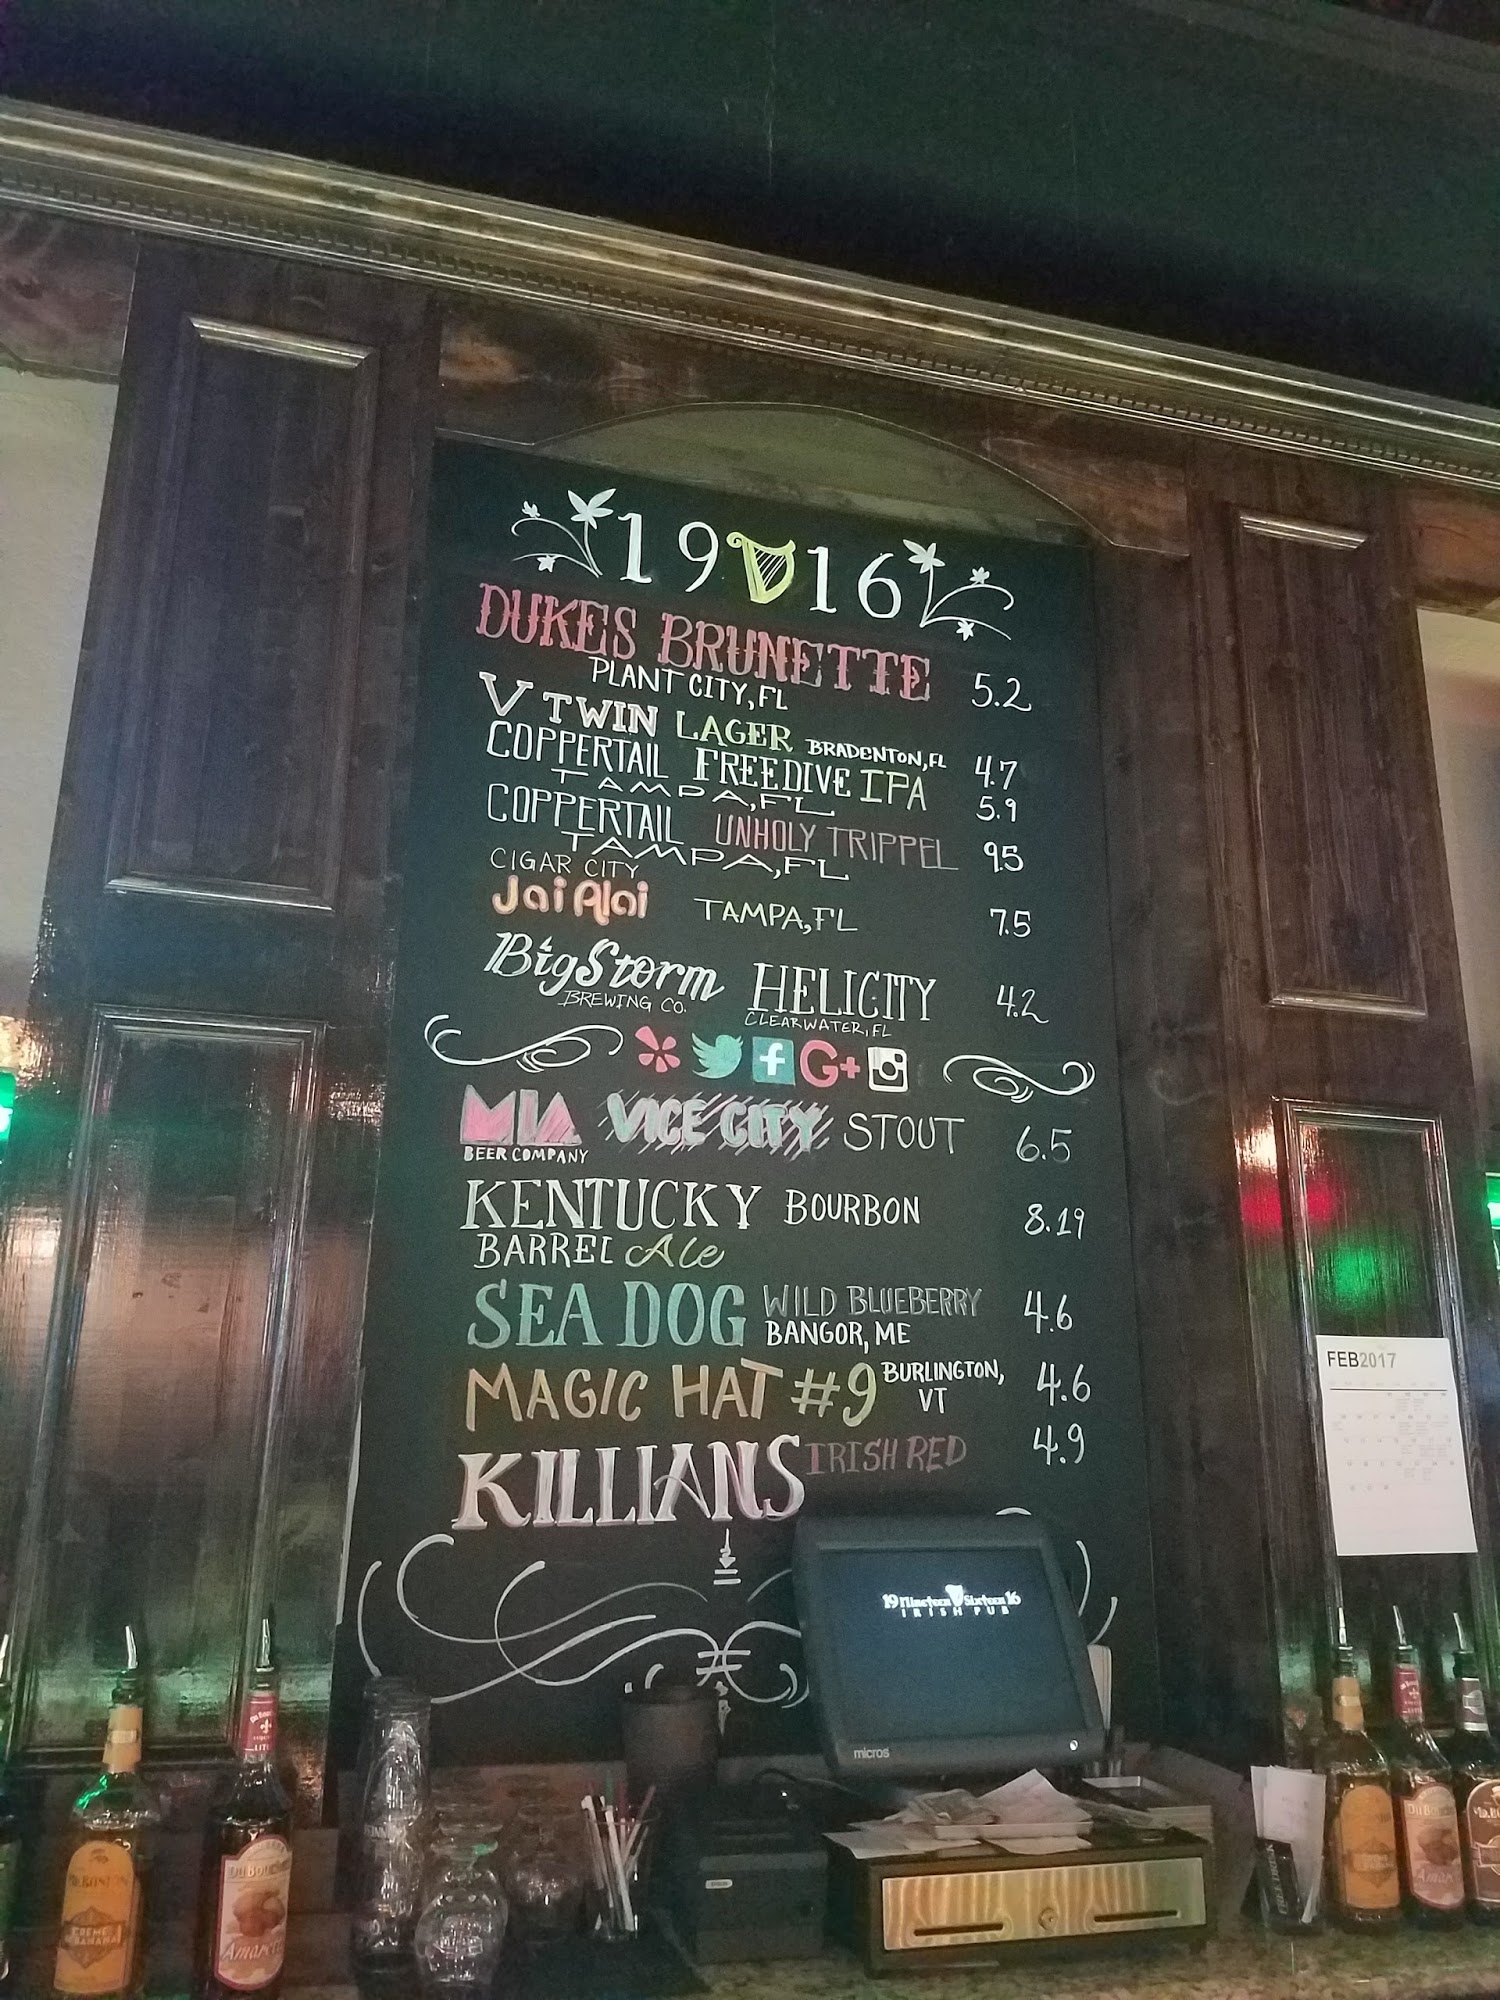 19 16
DUKES BRUNETTE
PLANT CITY, FL 5.2
V TWIN LAGER BRADENTON, FL 4.7
COPPERTAIL FREEDIVE IPA 5.9
TAMPA, FL
COPPERTAIL UNHOLY TRIPPEL 9.5
TAMPA, FL
CIGAR CITY
Jai Alai TAMPA, FL 7.5
BigStorm HELICITY 4.2
BREWING CO. CLEARWATER, FL
f G+
MIA VICE CITY STOUT 6.5
BEER COMPANY
KENTUCKY BOURBON 8.19
BARREL Ale
SEA DOG WILD BLUEBERRY 4.6
BANGOR, ME
MAGIC HAT #9 BURLINGTON, 4.6
VT
KILLIANS IRISH RED 4.9
FEB2017
19 Nineteen Sixteen 16
IRISH PUB
micros
CREME
BANANA
DuBouchett
Amaretto